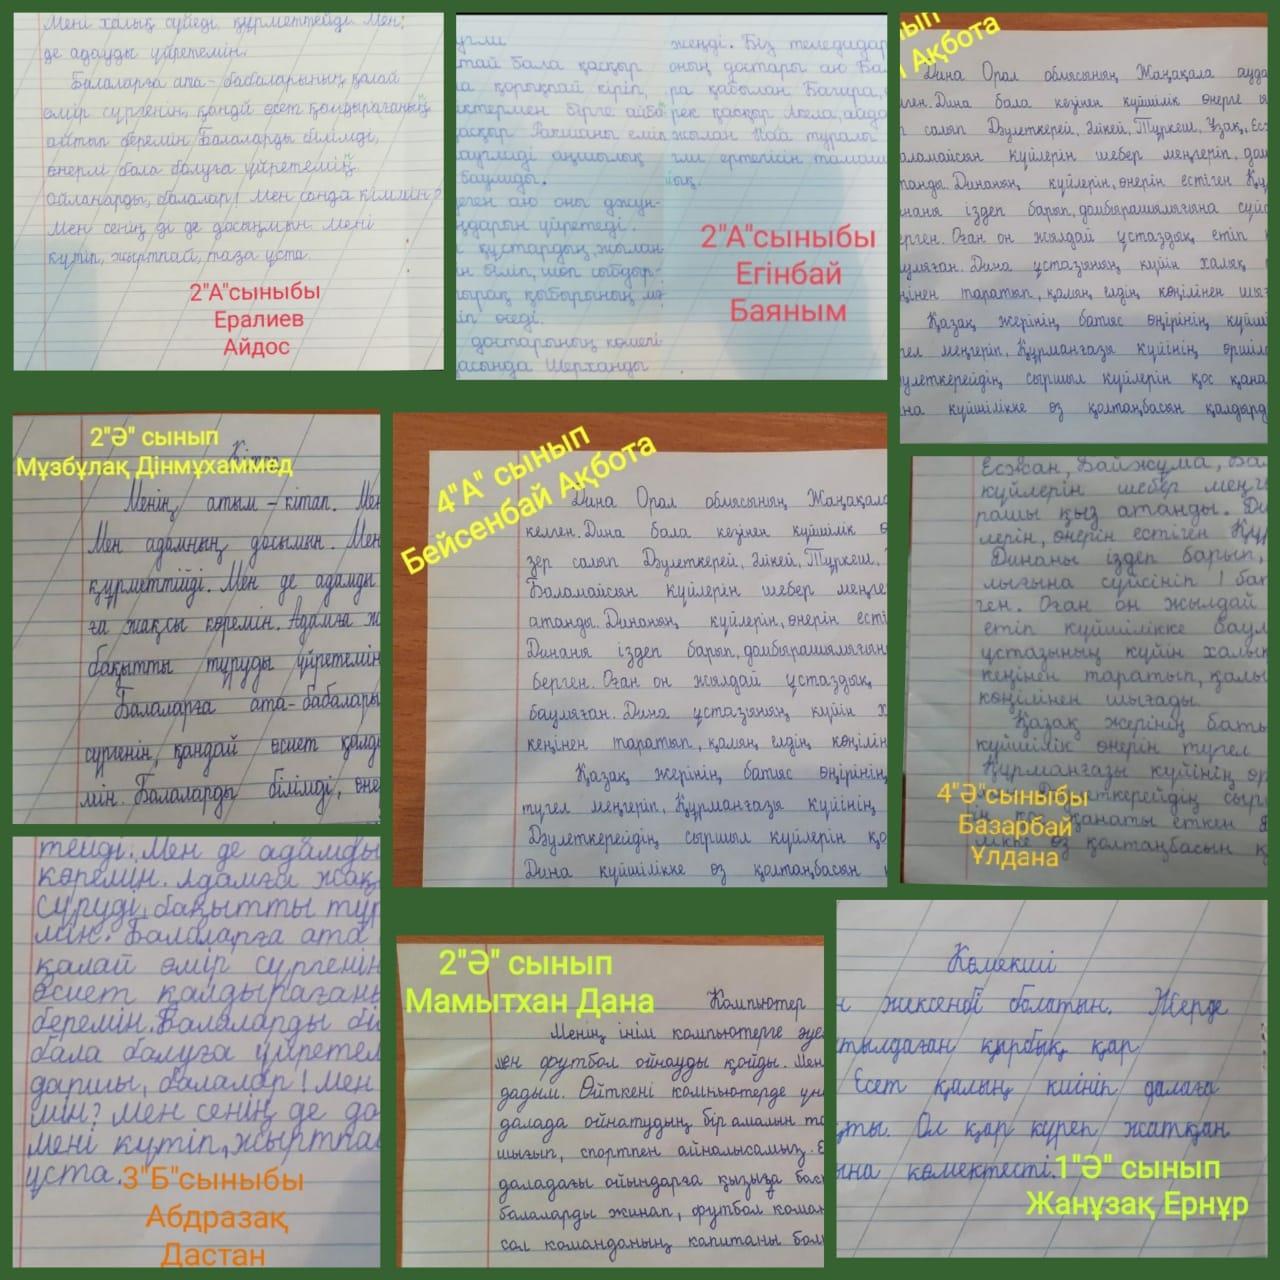 Мені халық сүйеді құрметтейді. Мен
де адауды үйретемін.
Балаларға апа-бабаларының қалай
өмір сүргенін, қандй өсет қолдырағаның
айтып беремін Балаларды білімді,
өнерлі бала болуға үйретемің.
ойланарды, балалар! Мен сонда кіммін?
Мен сенің ді де досыңмын. Мені
күтіп, жыртпай, таза ұста.
2"А"сыныбы
Ералиев
Айдос
угли
тай бала қасқыр
а қорықпай кіріп,
ктермен бірге
асқыр Ракшаны еміп
ауглиді аңшылық
баулиды.
ген аю оны джун-
ңдарын үйретеді.
құстардың, жылан
н біліп, шөп сыбдыр-
ырақ қыбырының мә
іп өседі.
достарының көмегі
асында Шерханды
жеңді. Біз теледидар
оның достары аю Ба
ра қабылан Багира,
рек қасқыр Акела, айда
жылан Каа туралы
гли ертегісін тамаш
йық.
2"А"сыныбы
Егінбай
Баяным
ып
Ақбота
Дина Орал облысының Жаңақала ауда
ген. Дина бала кезінен күйшілік өнерге ы
салып Дәулеткерей, Әлікей, Түркеш, Ұзақ, Есж
аламайсан күйлерін шебер меңгеріп, дом
танды. Динаның күйлерін, өнерін естіген Құ
инаны іздеп барып, домбырашылығына сүйс
ерген. Оған он жылдай ұстаздық етіп
улыған. Дина ұстазының күйін халық
ңінен таратып, қалың елдің көңілінен шығ
Қазақ жерінің батыс өңірінің күйші
гел меңгеріп, Құрманғазы күйінің өршіл
әулеткерейдің сыршыл күйлерін қос қана
на күйшілікке өз қолтаңбасын қалдырд
2"Ә" сынып
Мұзбұлақ Дінмұхаммед
Кітап
Менің атым – кітап. Мен
Мен адамның досымын. Мен
құрметтійді. Мен де адамды
ға жақсы көремін. Адамға ж
бақытты тұруды үйретемін
Балаларға ата-бабалары
сүргенін, қандай өсиет қалд
мін. Балаларды білімді, өне
4"А" сынып
Бейсенбай Ақбота
Дина Орал облысының Жаңақала
келген. Дина бала кезінен күйшілік ө
зер салып Дәулеткерей, Әлікей, Түркеш,
Баламайсан күйлерін шебер меңге
атанды. Динаның күйлерін, өнерін есті
Динаны іздеп барып, домбырашылығын
берген. Оған он жылдай ұстаздық
баулыған. Дина ұстазының күйін х
кеңінен таратып, қалың елдің көңілін
Қазақ жерінің батыс өңірінің
түгел меңгеріп, Құрманғазы күйінің
Дәулеткерейдің сыршыл күйлерін қо
Дина күйшілікке өз қолтаңбасын
Есжан, Байжұма, Ба
күйлерін шебер меңг
рашы қыз атанды. Ди
лерін, өнерін естіген Құр
Динаны іздеп барып,
лығына сүйсініп ! бат
ген. Оған он жылдай
етіп күйшілікке баул
ұстазының күйін халы
кеңінен таратып, қалы
көңілінен шығады.
Қазақ жерінің баты
күйшілік өнерін түгел
Құрманғазы күйінің өр
еткерейдің сыр
қанаты еткен
ікке өз қолтаңбасын қ
4"Ә"сыныбы
Базарбай
Ұлдана
тейді. Мен де адамды
көремін. Адамға жақ
сүруді, бақытты тұр
мін. Балаларға ата
қалай өмір сүргенін
өсиет қалдырағаны
беремін. Балаларды біл
бала болуға үйретем
даршы, балалар! Мен
мін? Мен сенің де до
мені күтіп, жыртпай
ұста.
3"Б"сыныбы
Абдразақ
Дастан
2"Ә" сынып
Мамытхан Дана
Компьютер
Менің інім компьютерге әуе
мен футбол ойнауды қойды. Мен
дадым. Өйткені компьютерде ұн
далада ойнатудың бір амалын та
шығып, спортпен айналысамыз. Е
даладағы ойындарға қызыға бас
балаларды жинап, футбол коман
сол команданың капитаны бол
Көмекші
н жексенбі болатын. Жерде
тылдаған қырбық қар
Есет қалың киініп далаға
ты. Ол қар күреп жатқан
ына көмектесті.
1"Ә" сынып
Жанұзақ Ернұр